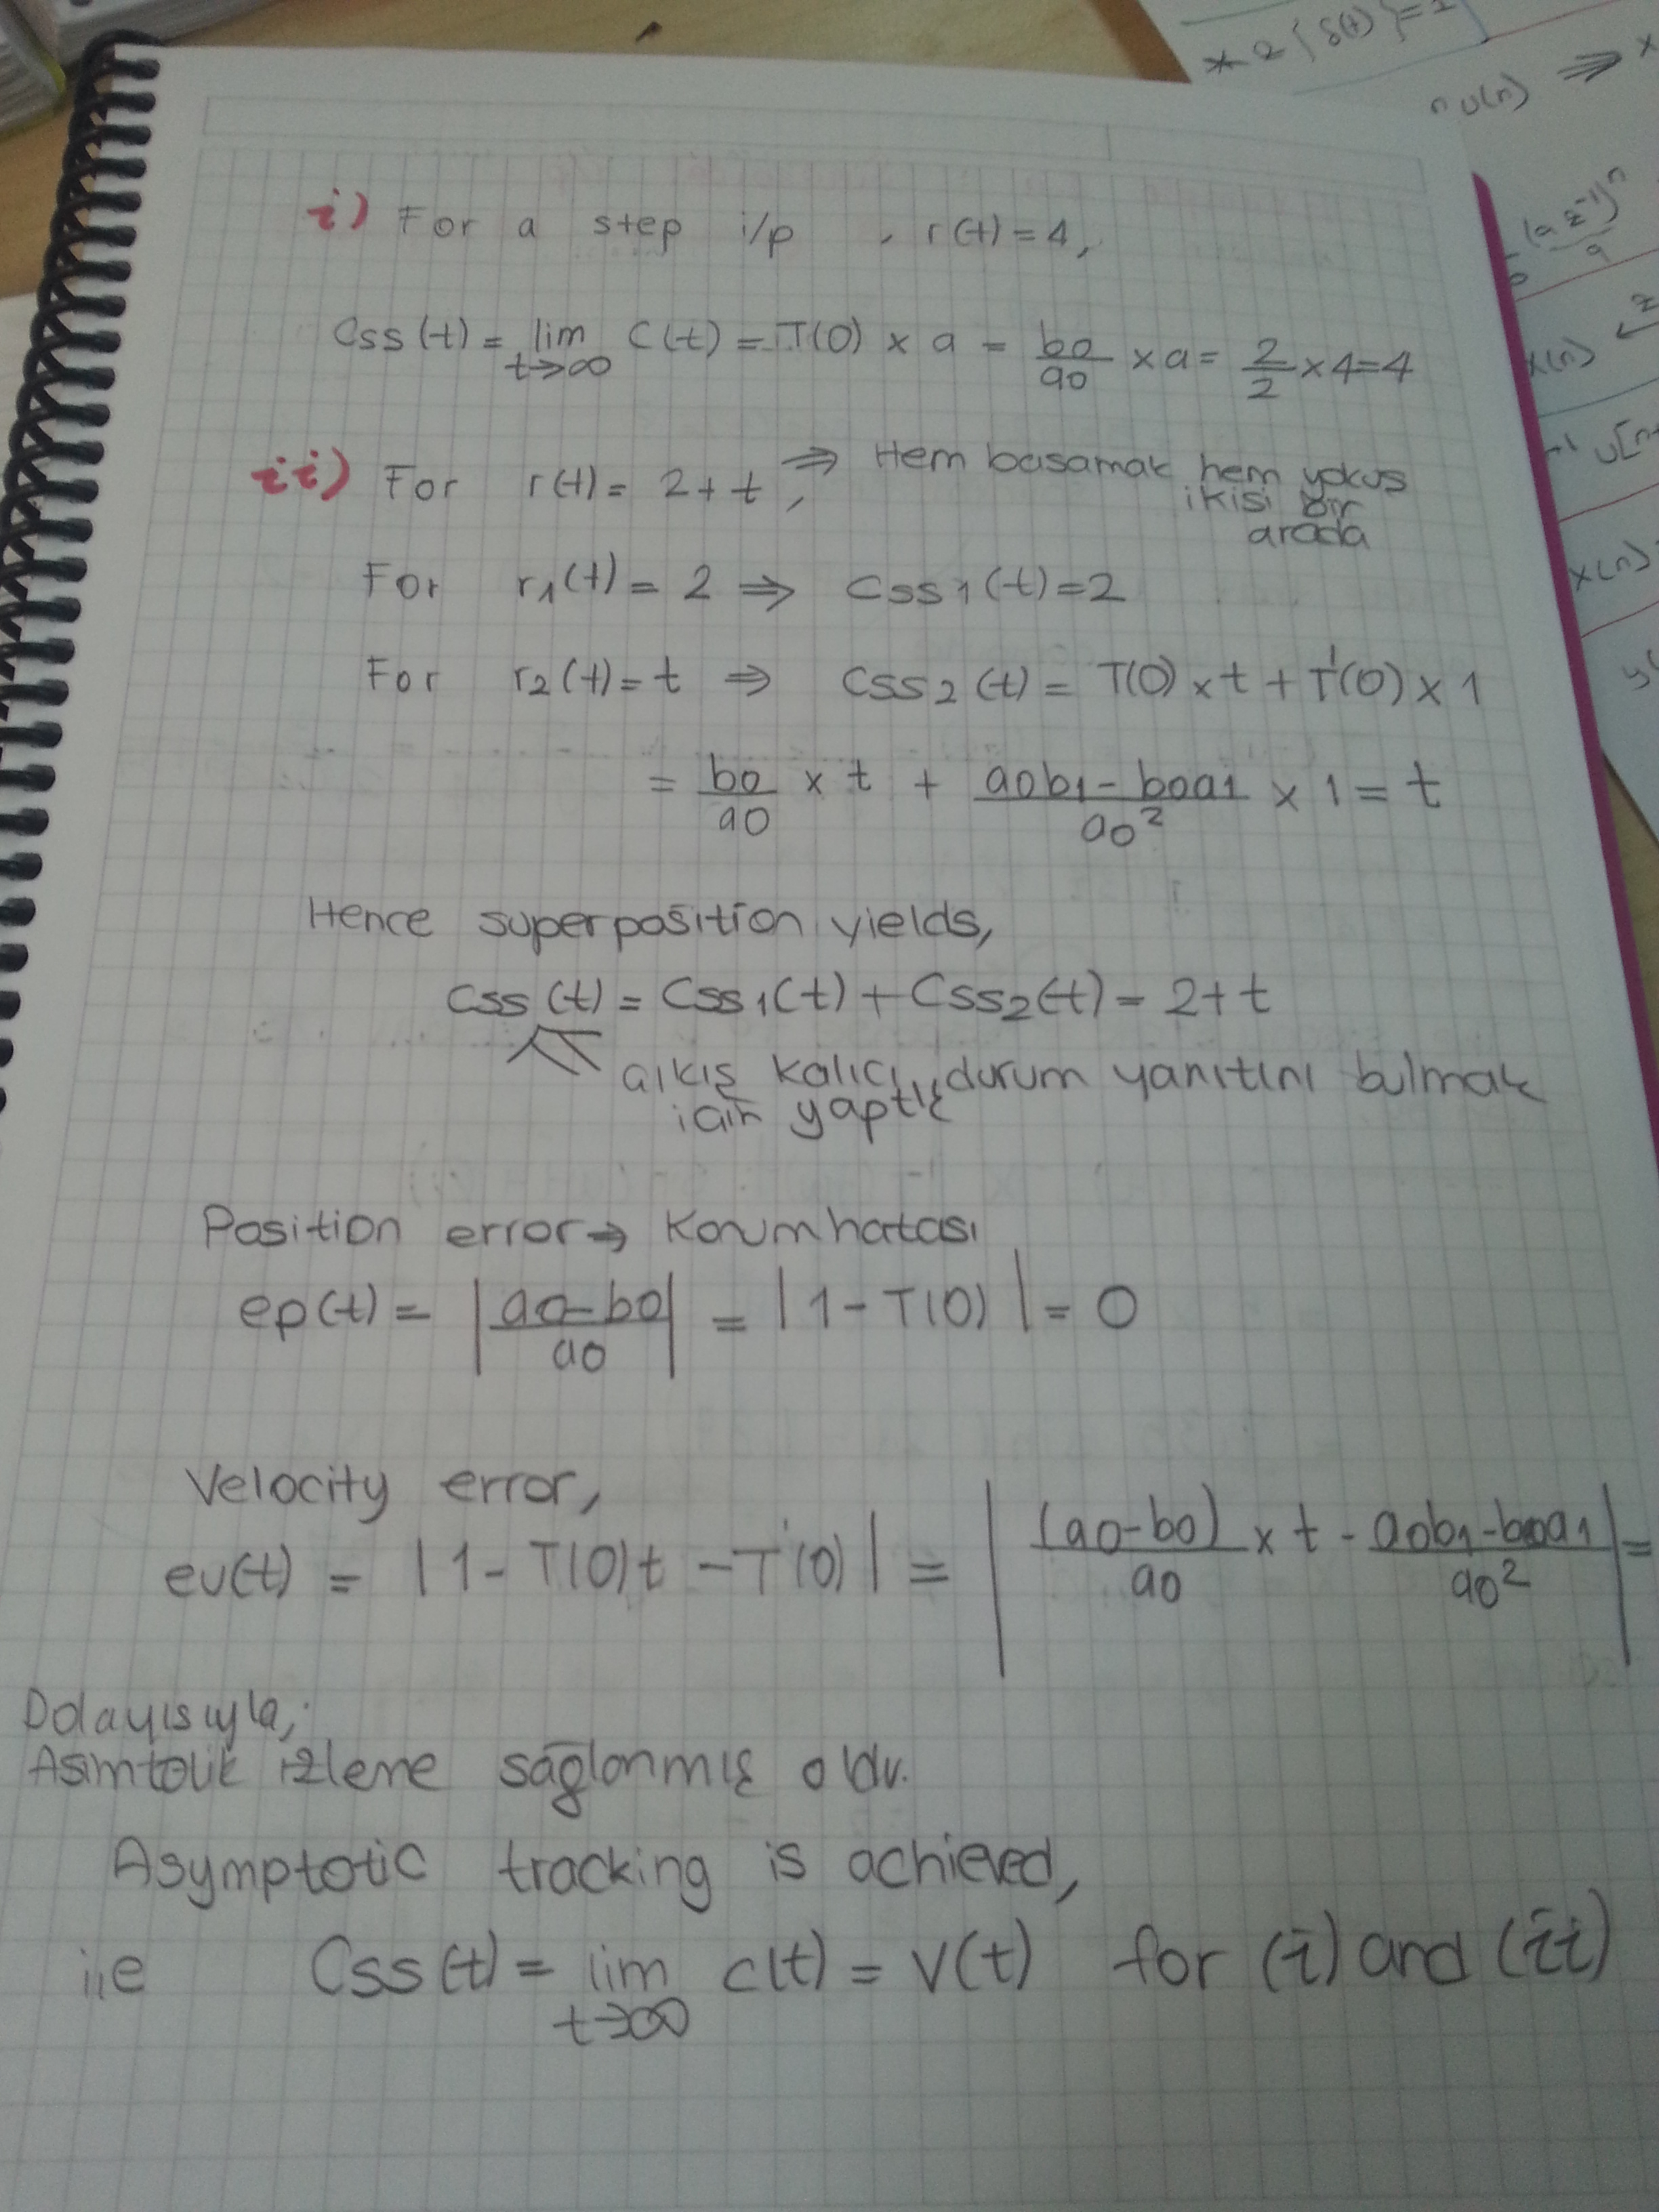 i) For a step i/p , r(t) = 4,
Css(t) = lim t→∞ C(t) = T(0) x a = bo/ao x a = 2/2 x 4 = 4
ii) For r(t) = 2 + t, ⇒ Hem basamak hem yokus
ikisi bir
arada
For r1(t) = 2 ⇒ Css1(t) = 2
For r2(t) = t ⇒ Css2(t) = T(0) x t + T'(0) x 1
= bo/ao x t + aob1 - boa1/ao² x 1 = t
Hence superposition yields,
Css(t) = Css1(t) + Css2(t) = 2 + t
çıkış kalıcı durum yanıtını bulmak
için yaptık
Position error → Konum hatası
ep(t) = |ao-bo/ao| = |1 - T(0)| = 0
Velocity error,
ev(t) = |1 - T(0)t - T'(0)| = |(ao-bo)/ao x t - aob1-boa1/ao²| =
Dolayısıyla,
Asimtotik izleme sağlanmış oldu.
Asymptotic tracking is achieved,
i,e Css(t) = lim t→∞ c(t) = v(t) for (i) and (ii)
n u(n) ⇒ x
x(n)
x(n)